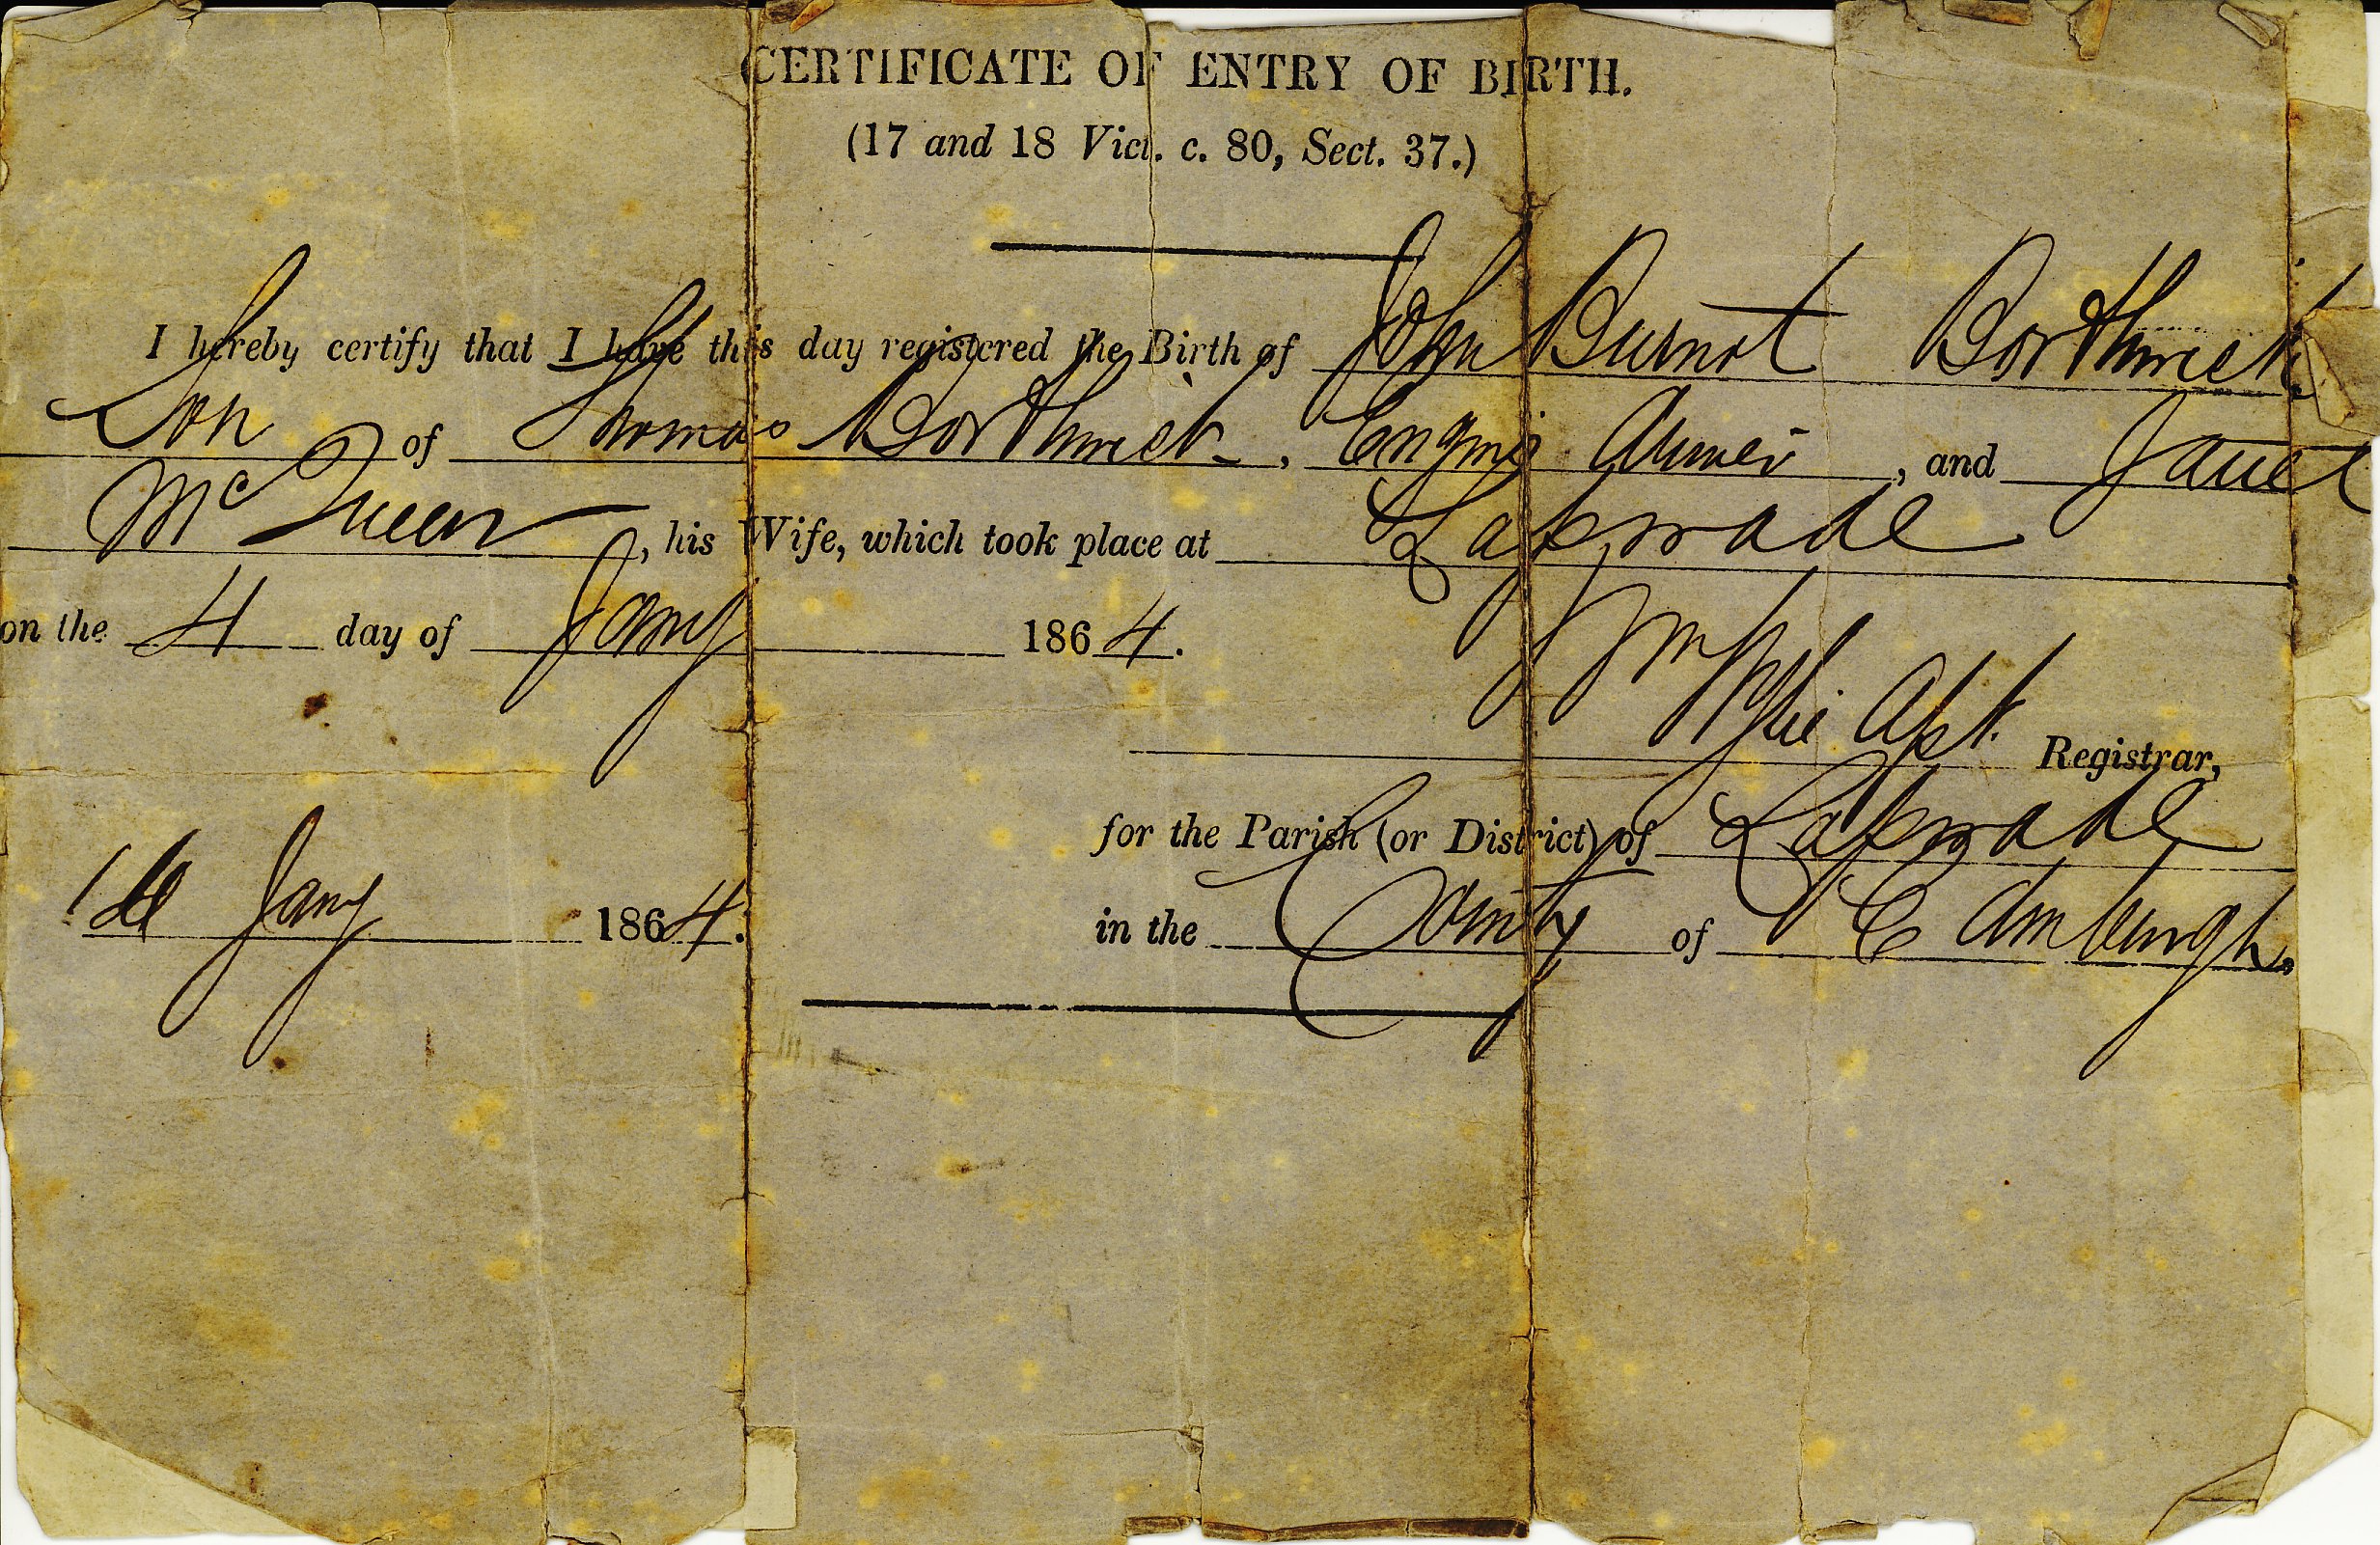 CERTIFICATE OF ENTRY OF BIRTH.
(17 and 18 Vict. c. 80, Sect. 37.)
I hereby certify that I have this day registered the Birth of John Burnot Borthwick
Son of Thomas Borthwick, Engine, and Janet
McQueen, his Wife, which took place at Lasswade
on the 4 day of Jany 1864.
Wm Wylie Asst. Registrar,
for the Parish (or District) of Lasswade
Jany 1864. in the County of Edinburgh.